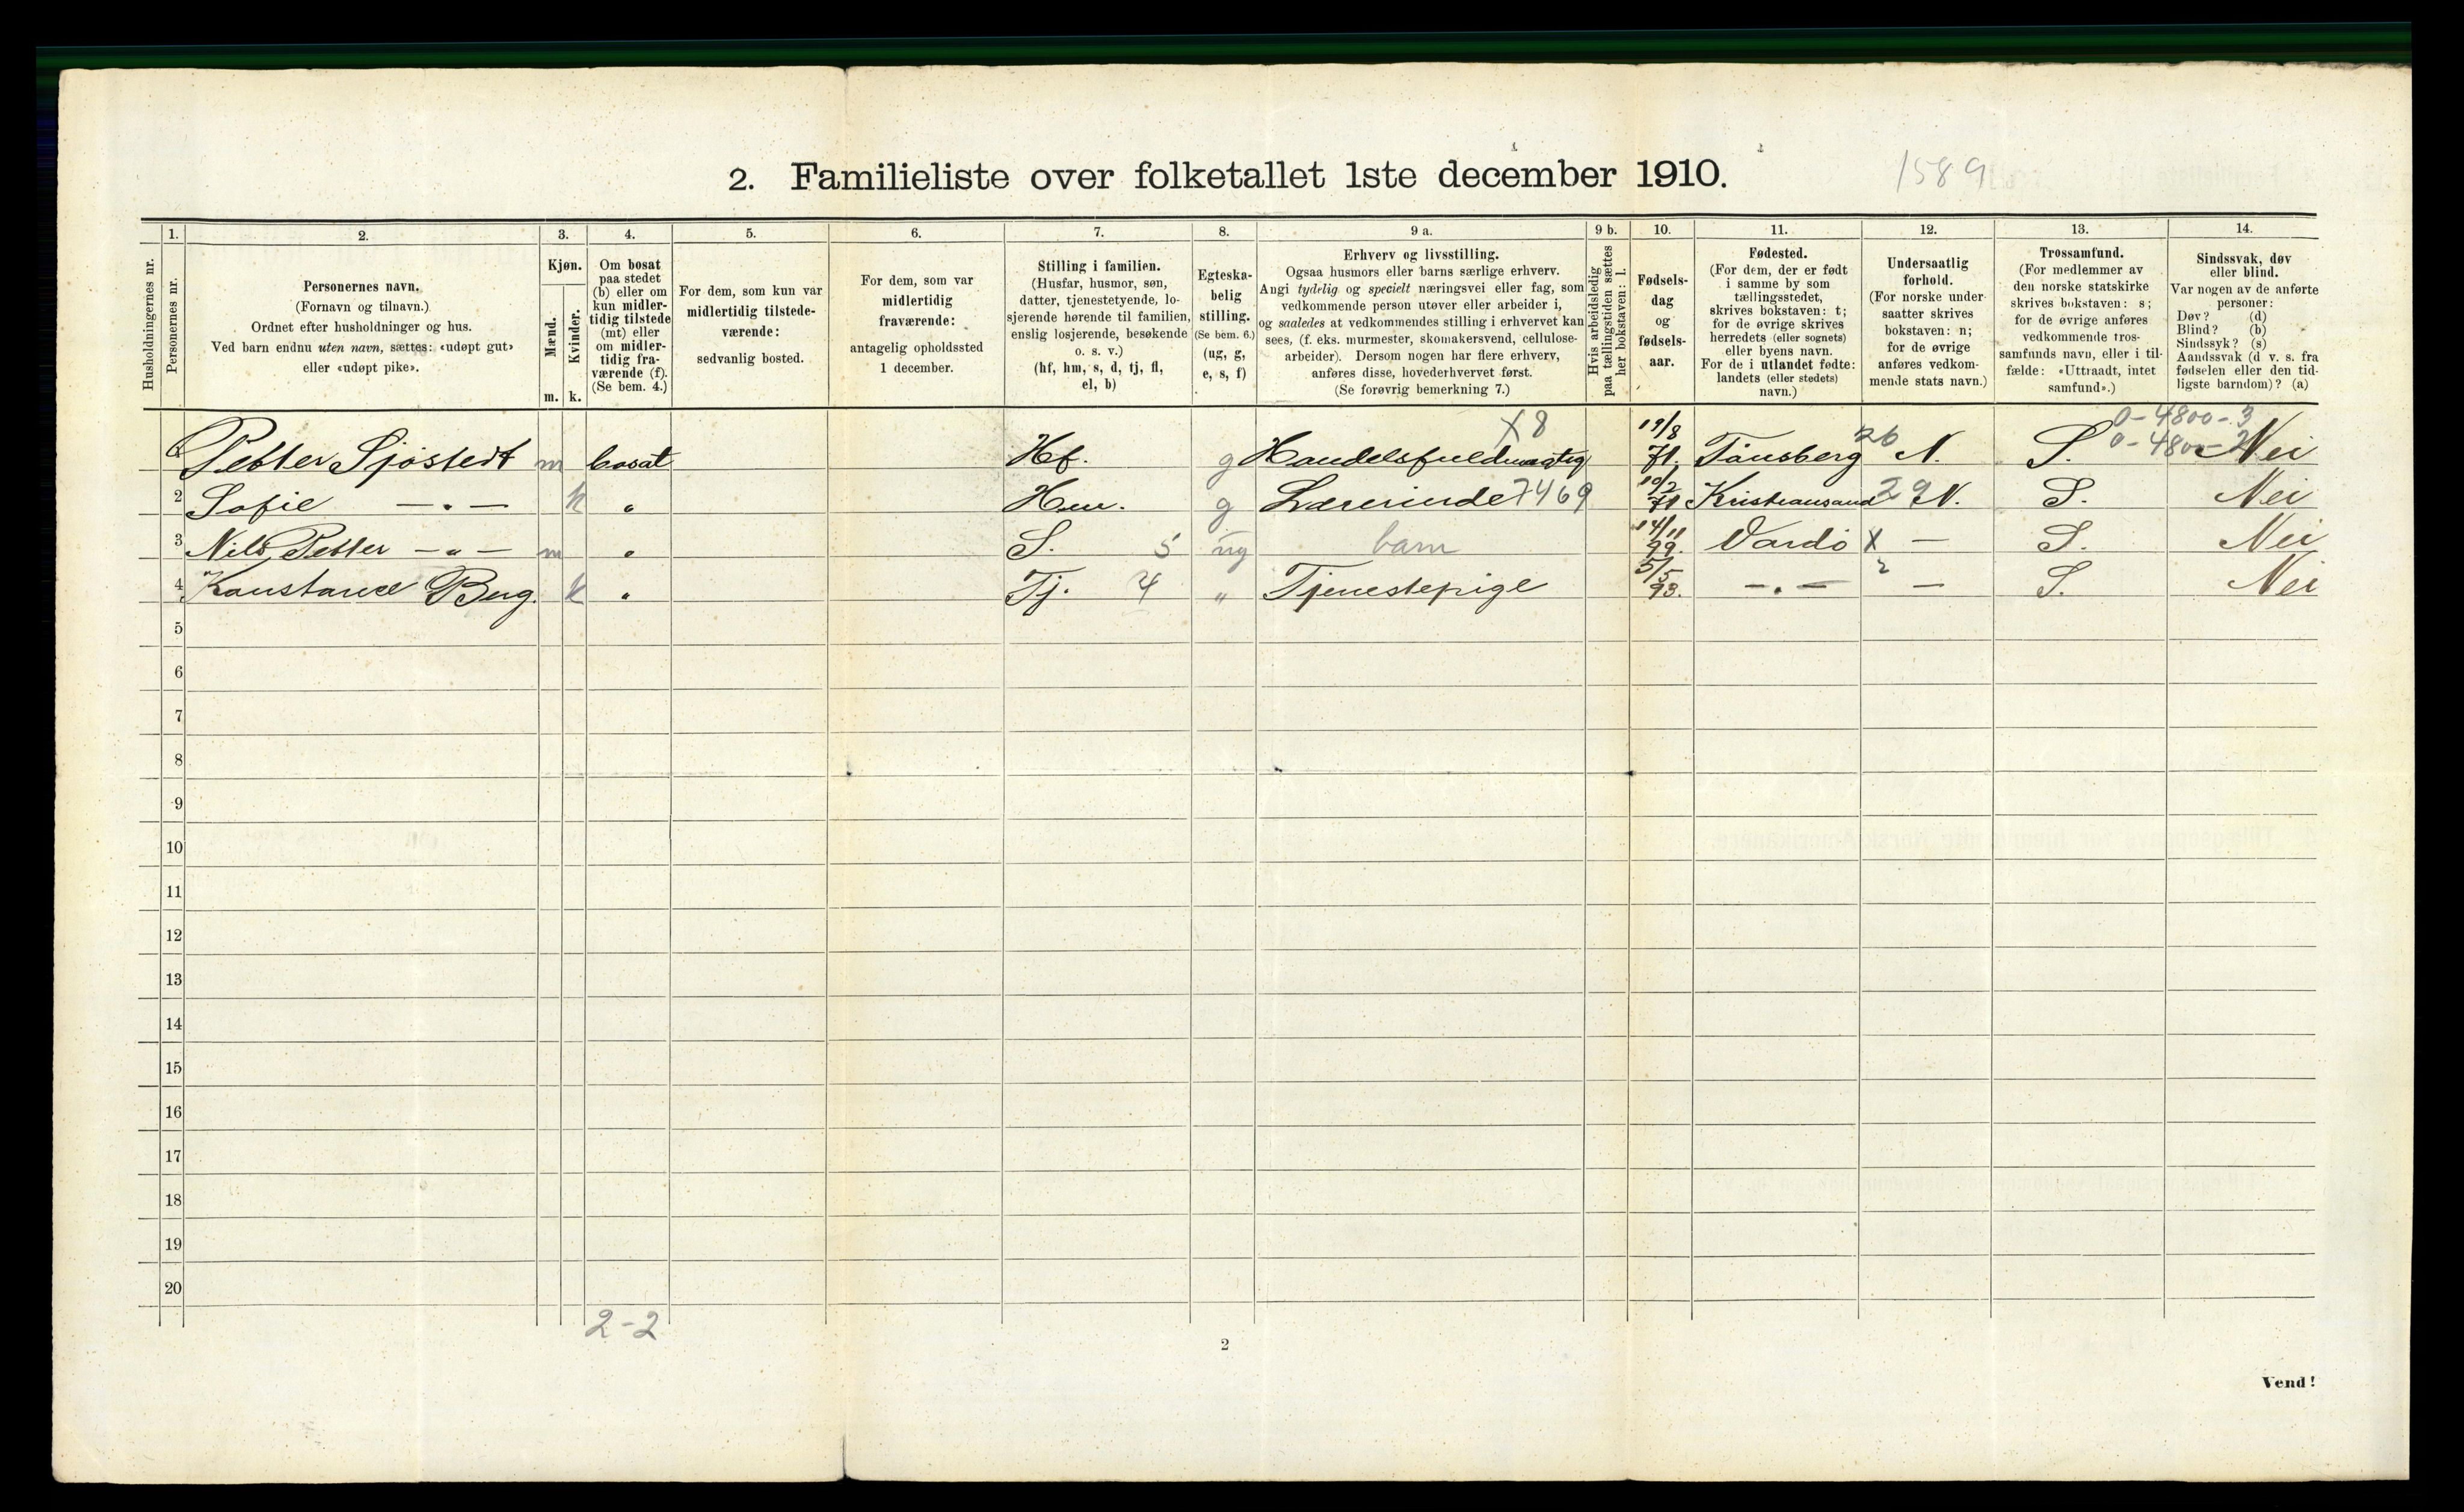 2. Familieliste over folketallet 1ste december 1910.
1589
Husholdningernes nr.
1.
Personernes nr.
2.
Personernes navn.
(Fornavn og tilnavn.)
Ordnet efter husholdninger og hus.
Ved barn endnu uten navn, sættes: «udøpt gut»
eller «udøpt pike».
3.
Kjøn.
Mænd.
Kvinder.
m. k.
4.
Om bosat
paa stedet
(b) eller om
kun midler-
tidig tilstede
(mt) eller
om midler-
tidig fra-
værende (f).
(Se bem. 4.)
5.
For dem, som kun var
midlertidig tilstede-
værende:
sedvanlig bosted.
6.
For dem, som var
midlertidig
fraværende:
antagelig opholdssted
1 december.
7.
Stilling i familien.
(Husfar, husmor, søn,
datter, tjenestetyende, lo-
sjerende hørende til familien,
enslig losjerende, besøkende
o. s. v.)
(hf, hm, s, d, tj, fl,
el, b)
8.
Egteska-
belig
stilling.
(Se bem. 6.)
(ug, g,
e, s, f)
9 a.
Erhverv og livsstilling.
Ogsaa husmors eller barns særlige erhverv.
Angi tydelig og specielt næringsvei eller fag, som
vedkommende person utøver eller arbeider i,
og saaledes at vedkommendes stilling i erhvervet kan
sees, (f. eks. murmester, skomakersvend, cellulose-
arbeider). Dersom nogen har flere erhverv,
anføres disse, hovederhvervet først.
(Se forøvrig bemerkning 7.)
9 b.
Hvis arbeidsledig
paa tællingstiden sættes
her bokstaven: l.
10.
Fødsels-
dag
og
fødsels-
aar.
11.
Fødested.
(For dem, der er født
i samme by som
tællingsstedet,
skrives bokstaven: t;
for de øvrige skrives
herredets (eller sognets)
eller byens navn.
For de i utlandet fødte:
landets (eller stedets)
navn.)
12.
Undersaatlig
forhold.
(For norske under-
saatter skrives
bokstaven: n;
for de øvrige
anføres vedkom-
mende stats navn.)
13.
Trossamfund.
(For medlemmer av
den norske statskirke
skrives bokstaven: s;
for de øvrige anføres
vedkommende tros-
samfunds navn, eller i til-
fælde: «Uttraadt, intet
samfund».)
14.
Sindssvak, døv
eller blind.
Var nogen av de anførte
personer:
Døv? (d)
Blind? (b)
Sindssyk? (s)
Aandssvak (d v. s. fra
fødselen eller den tid-
ligste barndom)? (a)
X8 0-4800-3
Petter Sjøstedt m bosat Hf. g Handelsfuldmægtig 19/8 71. Tønsberg 26 N. S. 0-4800-2 Nei
2 Sofie — " — k " Hm. g Lærerinde 7469 10/2 71 Kristiansand 29 N. S. Nei
3 Nils Petter — " — m " S. 5 ug barn 14/11 99. Vardø X — S. Nei
4 Konstance Berg. k " Tj. 4 " Tjenestepige 5/5 93. — " — 2 — S. Nei
5
6
7
8
9
10
11
12
13
14
15
16
17
18
19
20
2-2
2
Vend!